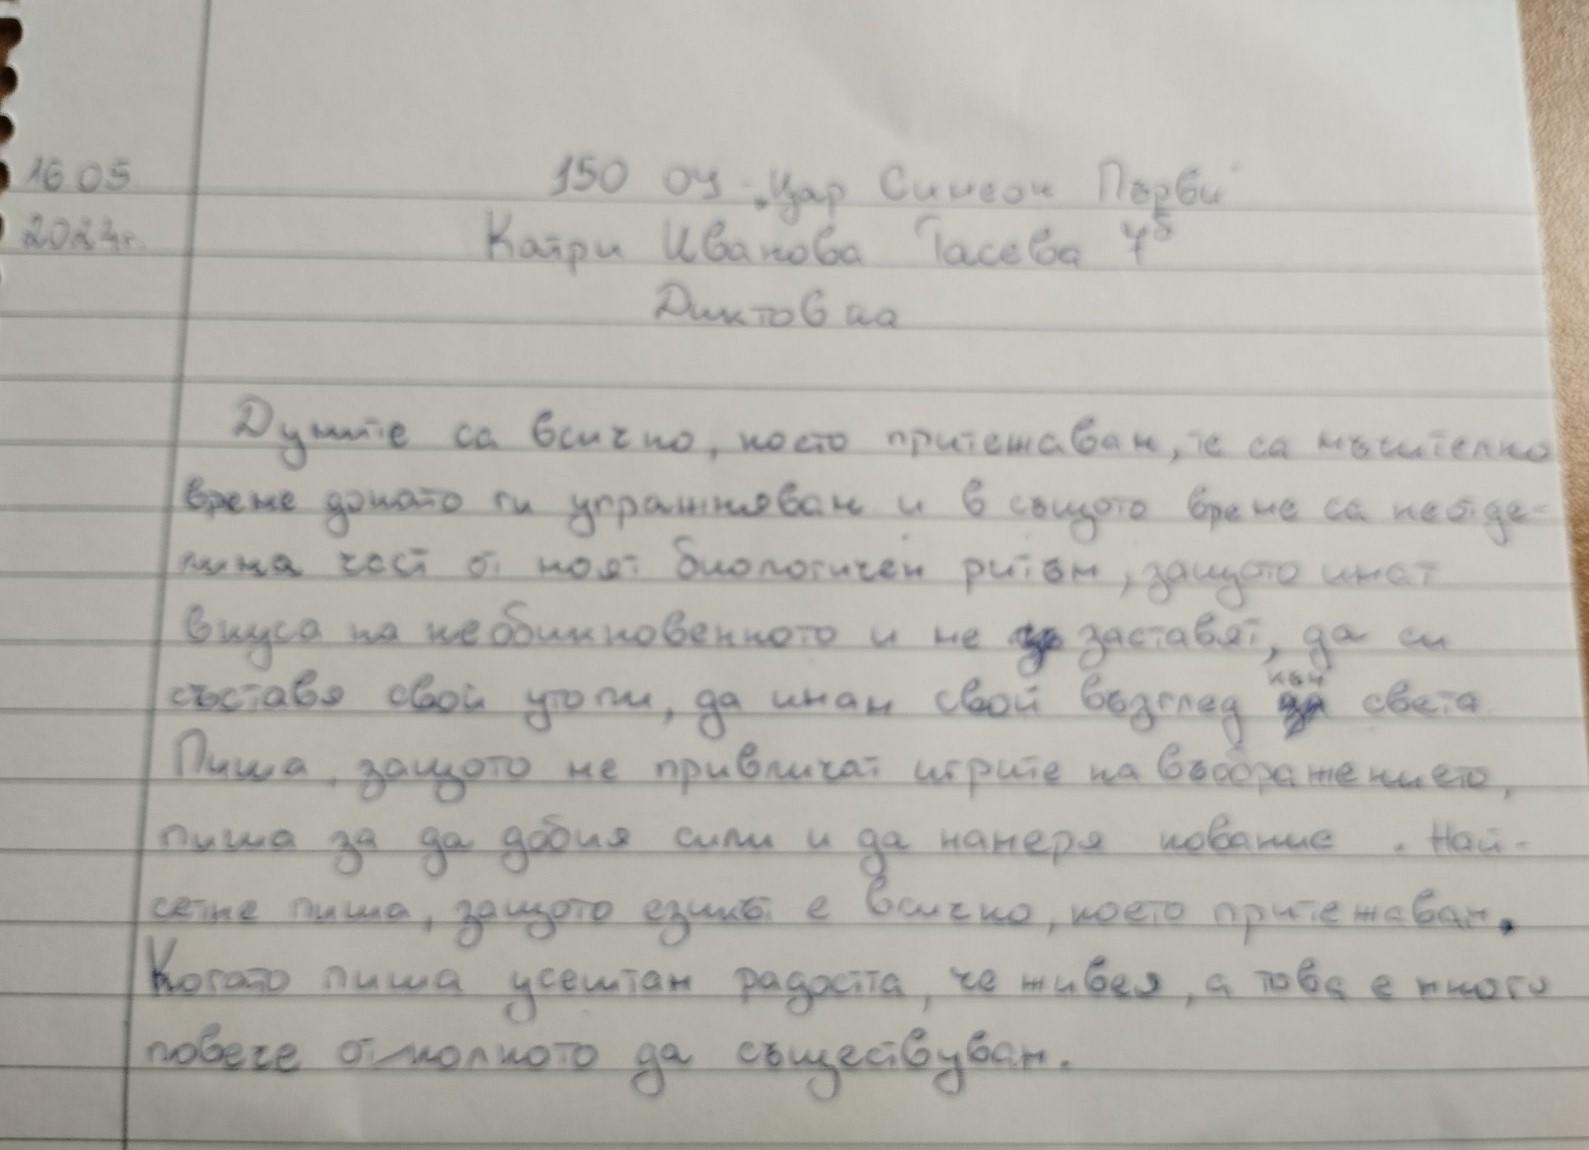 16 05 150 ОУ "Цар Симеон Първи"
2024г. Катри Иванова Тасева 7б
Диктовка
Думите са всичко, което притежавам, те са мъчително
време докато ги упражнявам и в същото време са неотде-
лима част от моят биологичен ритъм, защото имат
вкуса на необикновенното и ме заставят, да си
съставя свои утопи, да имам свой възглед към света.
Пиша, защото ме привличат игрите на въображението,
пиша за да добия сили и да намеря покание. Най-
сетне пиша, защото езикът е всичко, което притежавам.
Когато пиша усештам радостта, че живея, а това е много
повече от колкото да съществувам.